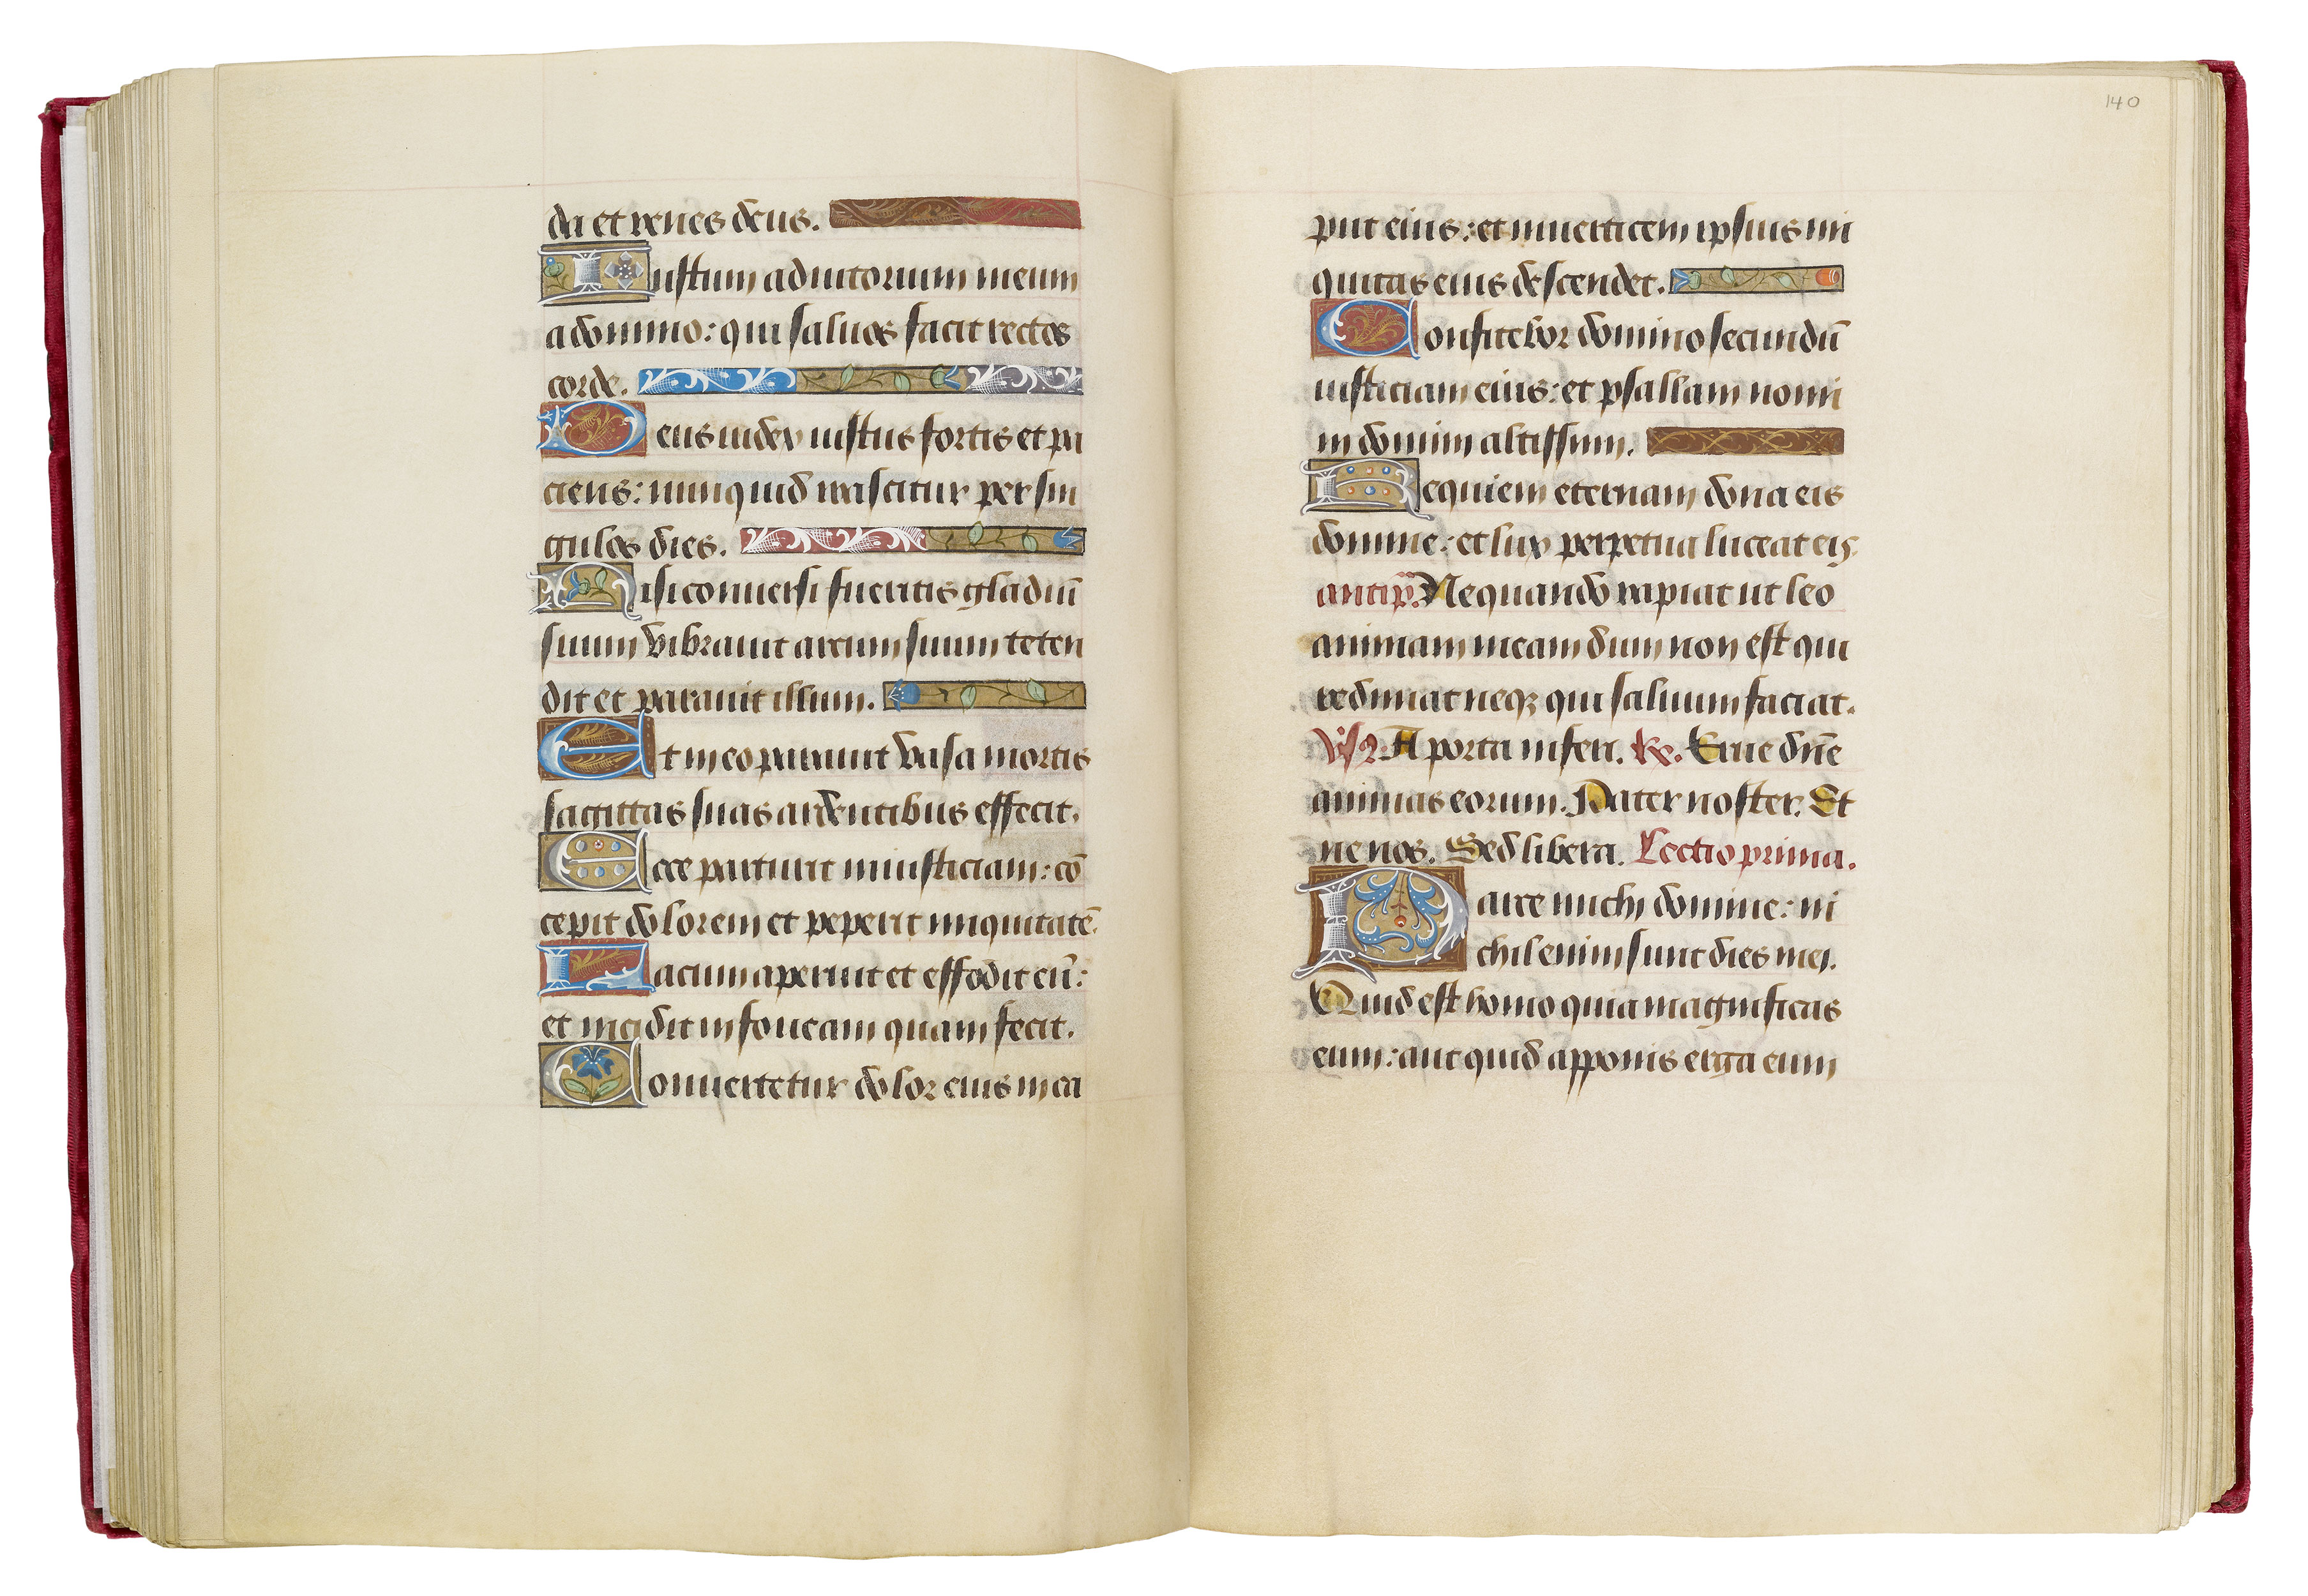 da et renes deus.
Iustum adiutorium meum
a domino: qui saluos facit rectos
corde.
Deus iudex iustus fortis et pa
ciens: nunquid irascitur per sin
gulos dies.
Nisi conuersi fueritis gladiū
suum vibrauit arcum suum teten
dit et parauit illum.
Et in eo parauit vasa mortis
sagittas suas ardentibus effecit.
Ecce parturit iniusticiam: cō
cepit dolorem et peperit iniquitatē.
Lacum aperuit et effodit eū:
et incidit in foueam quam fecit.
Conuertetur dolor eius in ca
140
put eius: et in uerticem ipsius ini
quitas eius descendet.
Confitebor domino secundū
iusticiam eius: et psallam nomi
ni domini altissimi.
Requiem eternam dona eis
domine: et lux perpetua luceat eis.
antip̄. Nequando rapiat ut leo
animam meam dum non est qui
redimat neqꝫ qui saluum faciat.
A porta inferi. Erue dn̄e
animas eorum. Pater noster. Et
ne nos. Sed libera. Lectio prima.
Parce michi domine: ni
chil enim sunt dies mei.
Quid est homo quia magnificas
eum: aut quid apponis erga eum